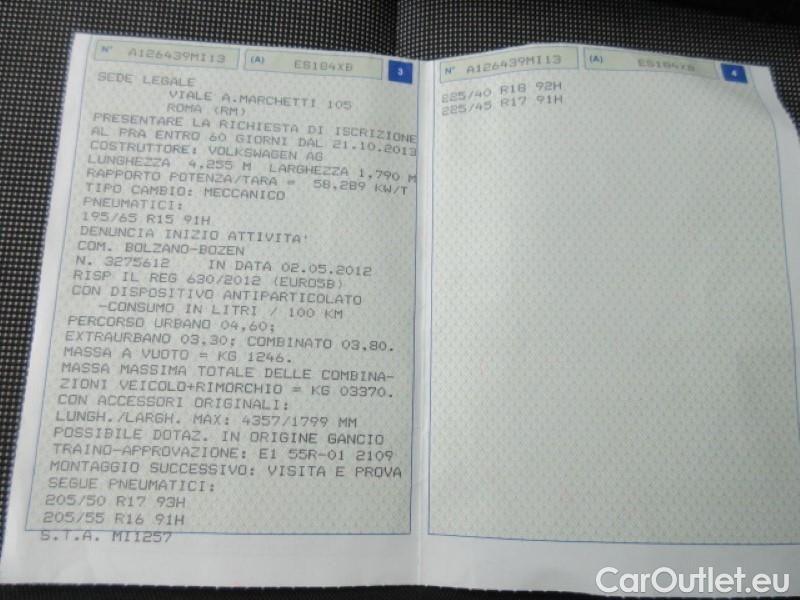 N° A126439MI13 (A) ES184XB 3
SEDE LEGALE
VIALE A.MARCHETTI 105
ROMA (RM)
PRESENTARE LA RICHIESTA DI ISCRIZIONE
AL PRA ENTRO 60 GIORNI DAL 21.10.2013
COSTRUTTORE: VOLKSWAGEN AG
LUNGHEZZA 4,255 M LARGHEZZA 1,790 M
RAPPORTO POTENZA/TARA = 58,289 KW/T
TIPO CAMBIO: MECCANICO
PNEUMATICI:
195/65 R15 91H
DENUNCIA INIZIO ATTIVITA'
COM. BOLZANO-BOZEN
N. 3275612 IN DATA 02.05.2012
RISP IL REG 630/2012 (EURO5B)
CON DISPOSITIVO ANTIPARTICOLATO
-CONSUMO IN LITRI / 100 KM
PERCORSO URBANO 04,60;
EXTRAURBANO 03,30; COMBINATO 03,80.
MASSA A VUOTO = KG 1246.
MASSA MASSIMA TOTALE DELLE COMBINA-
ZIONI VEICOLO+RIMORCHIO = KG 03370.
CON ACCESSORI ORIGINALI:
LUNGH./LARGH. MAX: 4357/1799 MM
POSSIBILE DOTAZ. IN ORIGINE GANCIO
TRAINO-APPROVAZIONE: E1 55R-01 2109
MONTAGGIO SUCCESSIVO: VISITA E PROVA
SEGUE PNEUMATICI:
205/50 R17 93H
205/55 R16 91H
S.T.A. MI1257
N° A126439MI13 (A) ES184XB 4
225/40 R18 92H
225/45 R17 91H
CarOutlet.eu